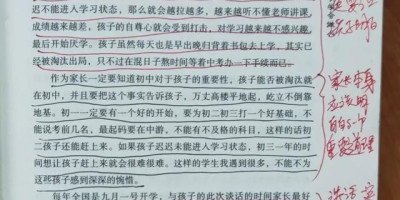 迟不能进入学习状态，那么就会越拉越多，越来越听不懂老师讲课，
成绩越来越差，孩子的自尊心就会受到打击，对学习越来越不感兴趣，
最后开始厌学。孩子虽然每天也是早出晚归背着书包去上学，其实已
经被淘汰出局，只不过在混日子熬时间等着中考办一下手续而已。
作为家长一定要知道初中对于孩子的重要性，孩子能否被淘汰就
在初中，并且要把这个事实告诉孩子，万丈高楼平地起，屹立不倒靠
地基。初一一定要有一个好的开始，要为初二初三打一个好基础，不
能说考前几名，最起码要在中游，不能有不及格的科目，这样的话初
二孩子还能赶上来。如果孩子迟迟未能进入学习状态，初三一年的时
间想让孩子赶上来就会很难很难。这样的学生我遇到很多，不能不为
这些孩子感到深深的惋惜。
每年全国是九月一号开学，与孩子的此次谈话的时间家长最好